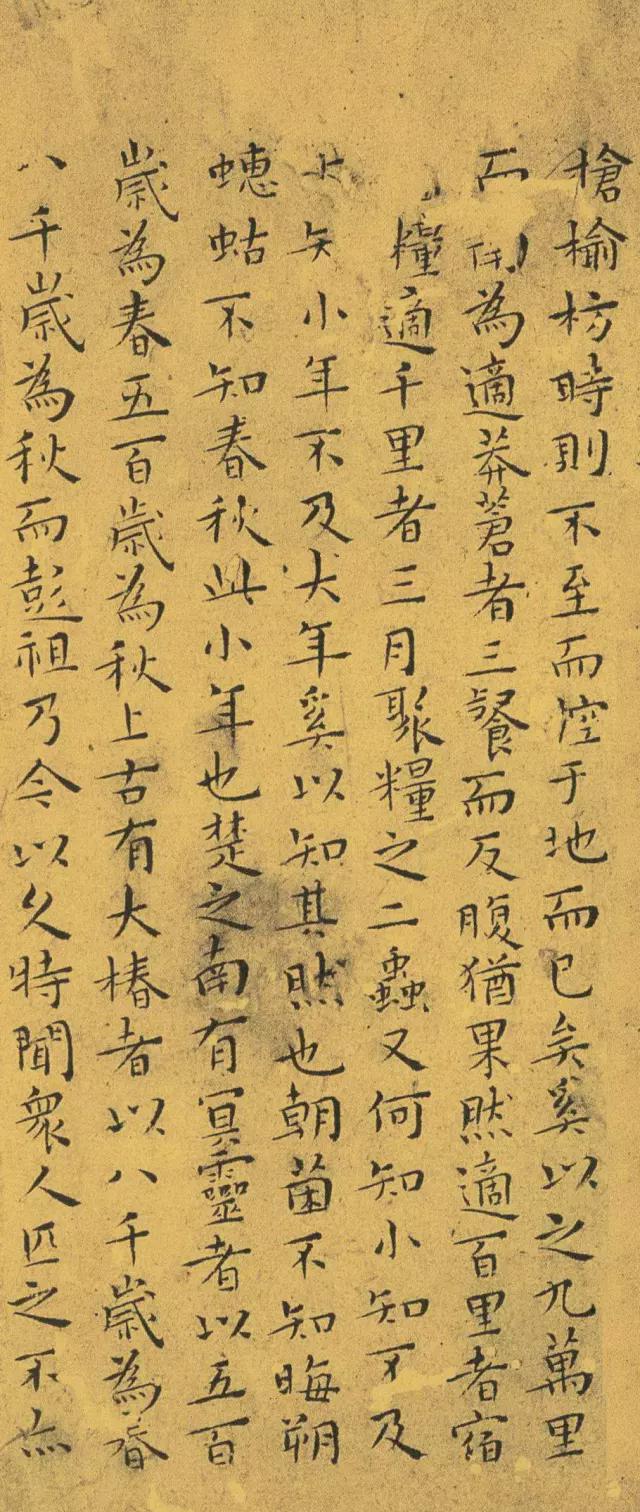 槍榆枋時則不至而控于地而已矣奚以之九萬里
而為適莽蒼者三餐而反腹猶果然適百里者宿
糧適千里者三月聚糧之二蟲又何知小知不及
小年不及大年奚以知其然也朝菌不知晦朔
蟪蛄不知春秋此小年也楚之南有冥靈者以五百
歲為春五百歲為秋上古有大椿者以八千歲為春
八千歲為秋而彭祖乃今以久特聞衆人匹之不亦